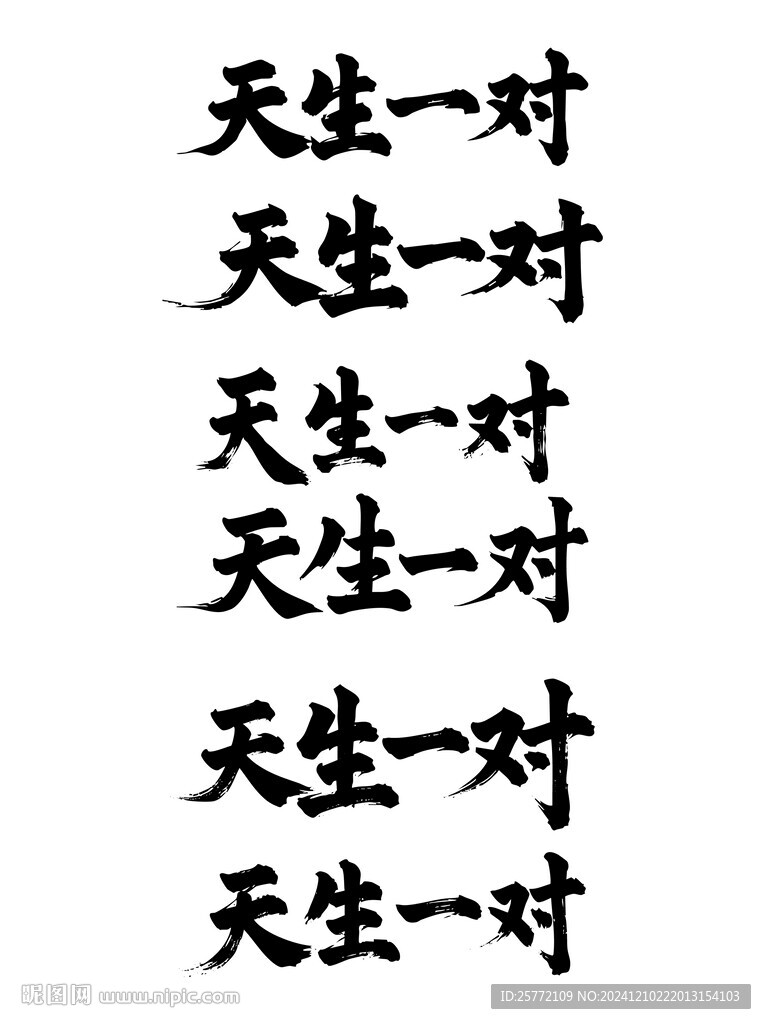 天生一对
天生一对
天生一对
天生一对
天生一对
天生一对
昵图网 www.nipic.com ID:25772109 NO:20241210222013154103